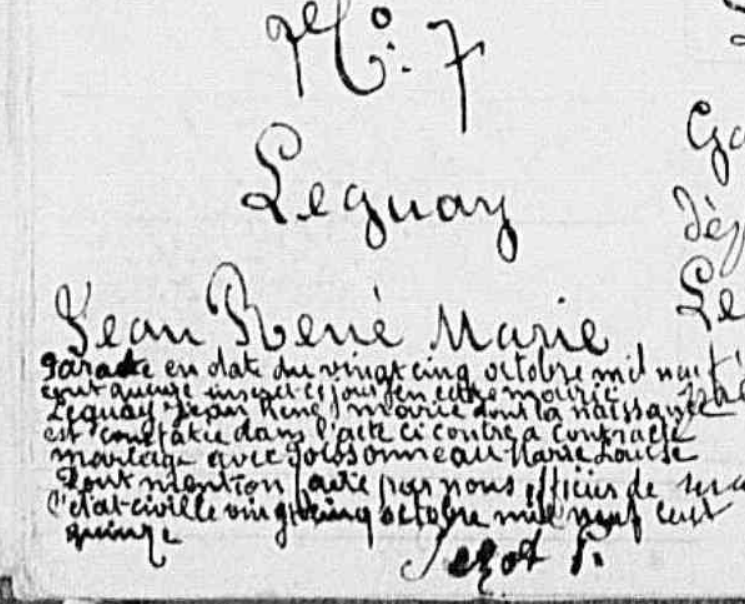 No. 7
Leguay
Jean René Marie
Par acte en date du vingt cinq octobre mil neuf
cent quinze inscrit ce jour en cette mairie
Leguay Jean René Marie dont la naissance
est constatée dans l'acte ci contre a contracté
mariage avec Marie Louise
Dont mention faite par nous officier de
l'état civil le vingt cinq octobre mil neuf cent
quinze